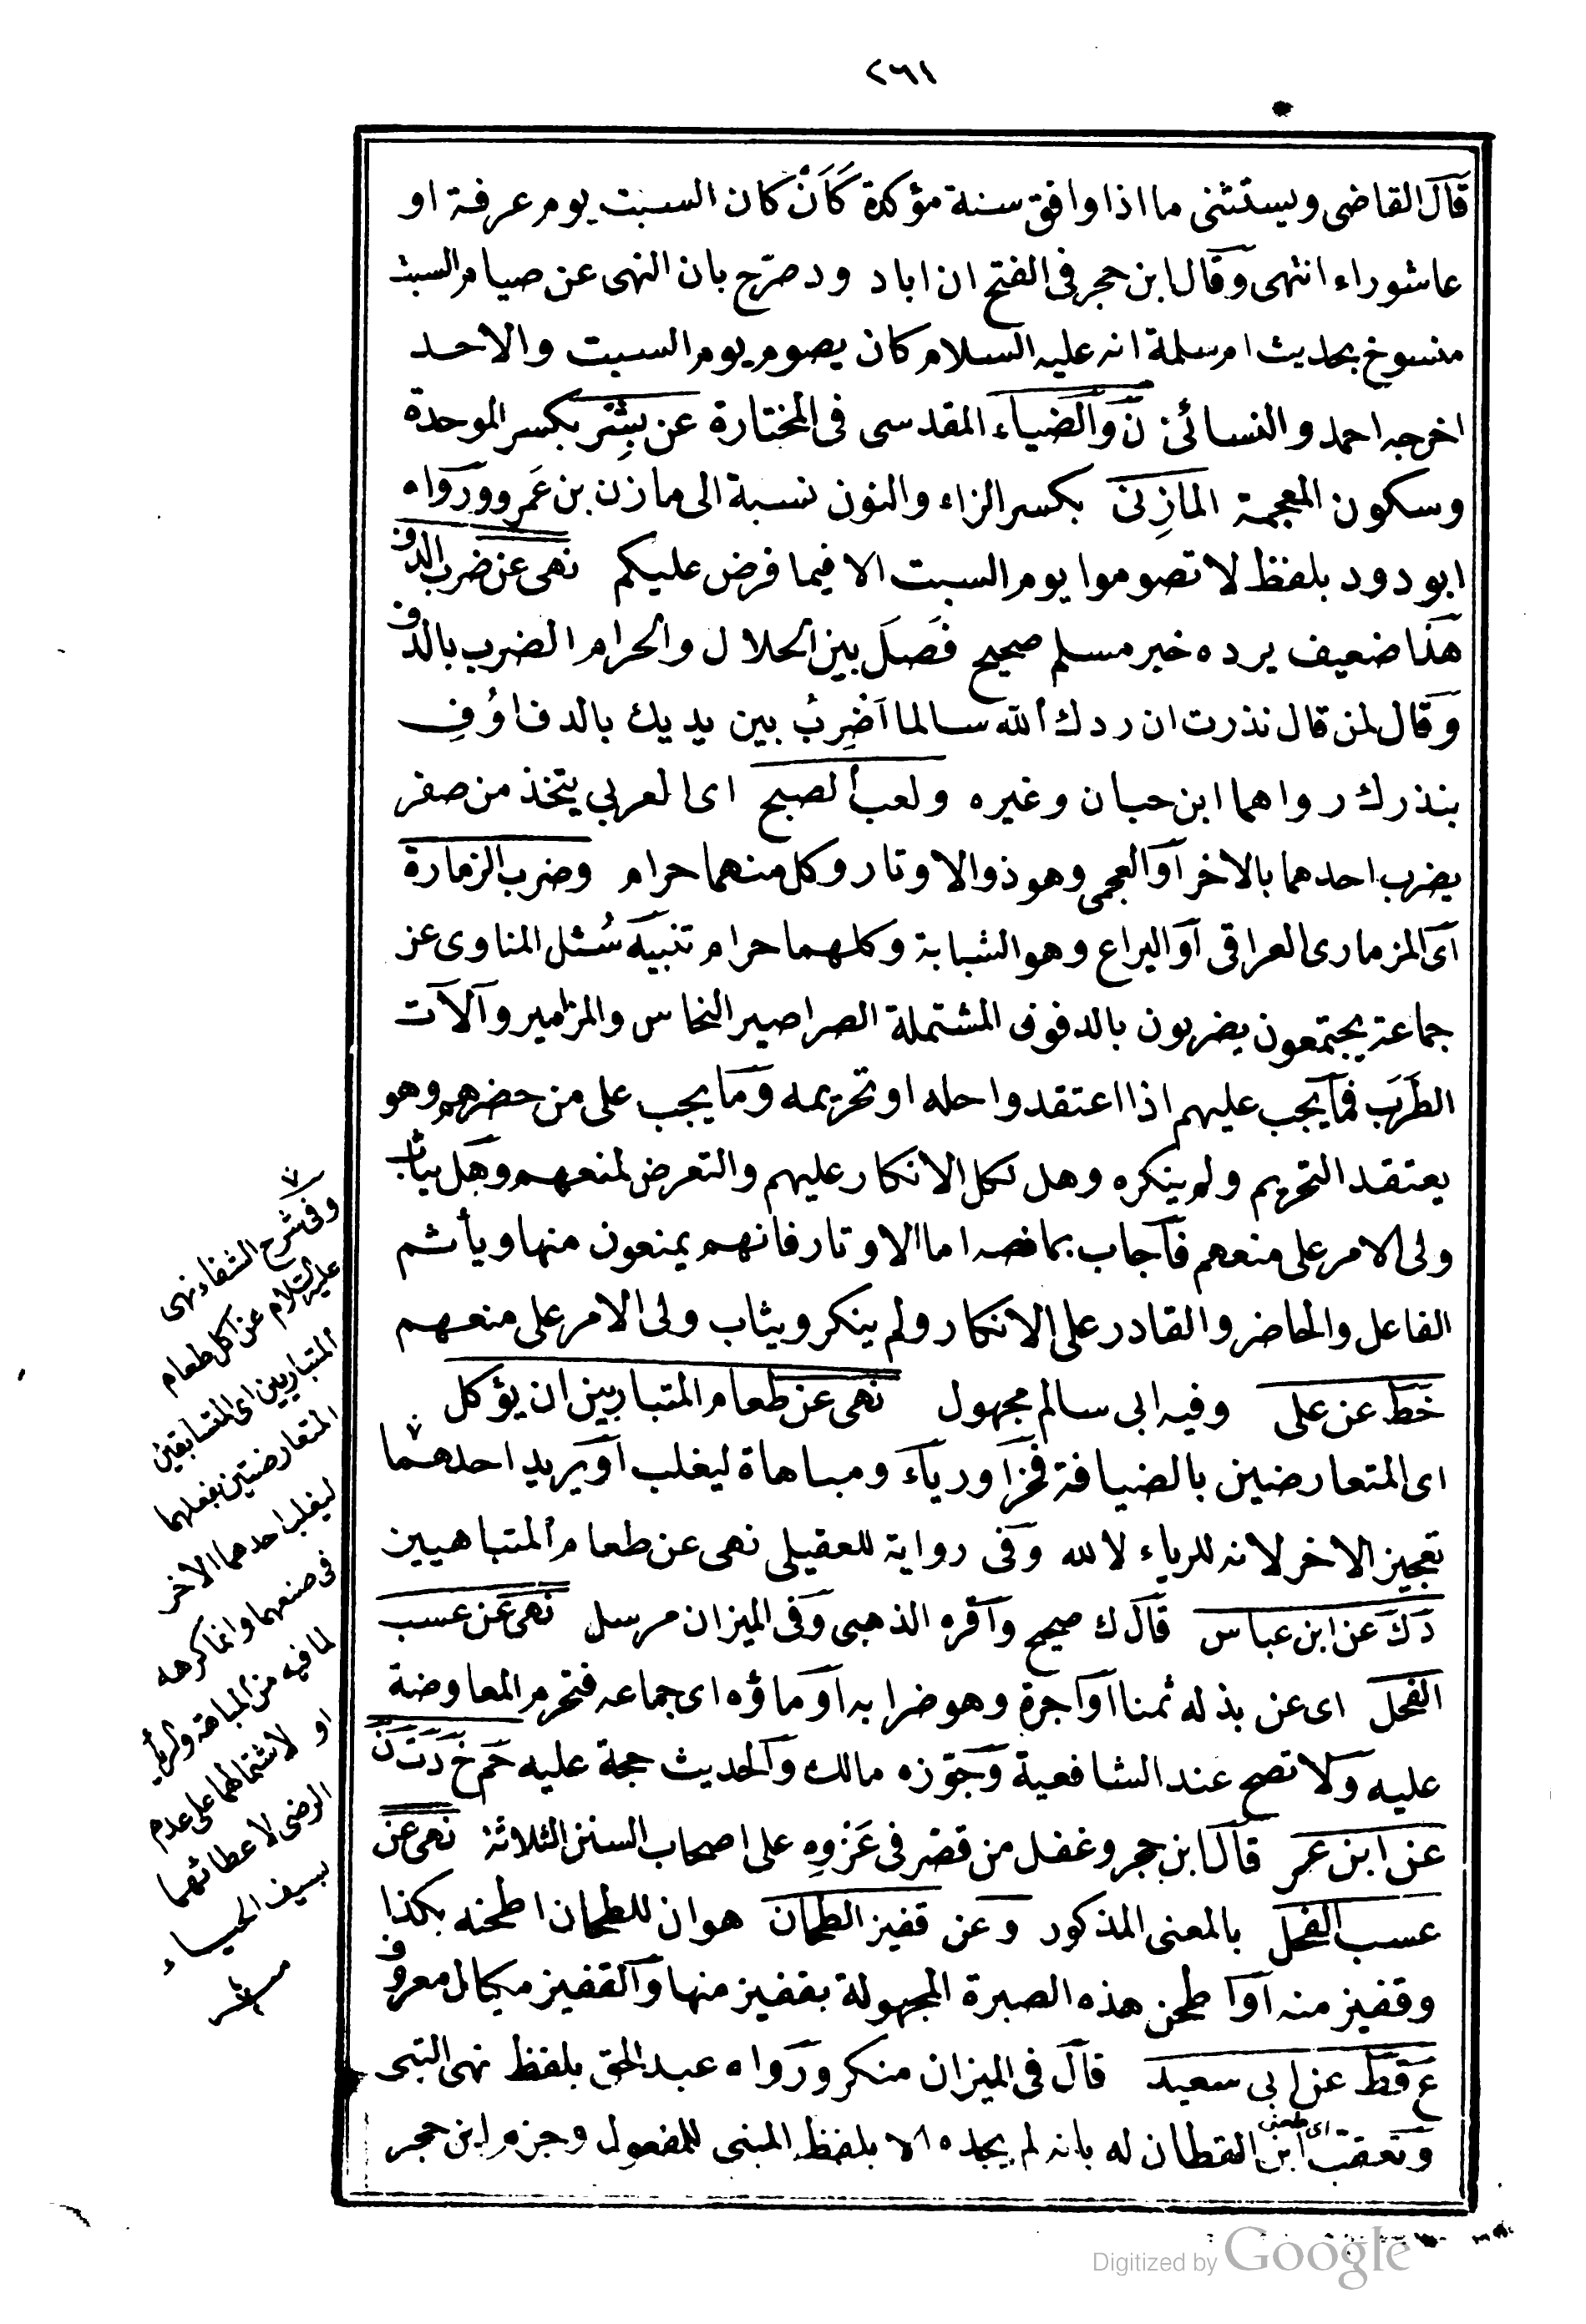 ٢٦١
قال القاضى ويستثنى ما اذا وافق سنة مؤكدة كَاَنْ كان السبت يوم عرفة او
عاشوراء انتهى وقال ابن حجر فى الفتح ان اباد ود صرّح بان النهى عن صيام السبت
منسوخ بحديث ام سلمة انه عليه السلام كان يصوم يوم السبت والاحد
اخرجه احمد والنسائى ن والضياء المقدسى فى المختارة عن بِشْر بكسر الموحدة
وسكون المعجمة المازِنى بكسر الزاء والنون نسبة الى مازن بن عَمرو ورواه
ابو دود بلفظ لا تصوموا يوم السبت الا فيما فرض عليكم نهى عن ضرب الدف
هذا ضعيف يرده خبر مسلم صحيح فَصَلَ بين الحلال والحرام الضرب بالدف
وقال لمن قال نذرت ان ردك الله سالما اَضْرِبُ بين يديك بالدف اَوْفِ
بنذرك رواهما ابن حبان وغيره ولعب الصبح اى العربي يتخذ من صفر
يضرب احدهما بالاخر او العجمى وهو ذو الاوتار وكل منهما حرام وضرب الزمارة
اى المزمارى العراقى او اليراع وهو الشبابة وكلهما حرام تنبيه سُئل المناوى عن
جماعة يجتمعون يضربون بالدفوف المشتملة الصراصير النحاس والمزامير وآلات
الطَرَب فما يجب عليهم اذا اعتقدوا حله او تحريمه وما يجب على من حضرهم وهو
يعتقد التحريم ولم ينكره وهل لكل الانكار عليهم والتعرض لمنعهم وهل يثاب
ولى الامر على منعهم فاجاب بما نصه اما الاوتار فانهم يمنعون منها ويأثم
الفاعل والحاضر والقادر على الانكار ولم ينكر ويثاب ولى الامر على منعهم
خط عن على وفيه ابى سالم مجهول نهى عن طعام المتباريين ان يؤكل
اى المتعارضين بالضيافة فخرا ورياء ومباهاة ليغلب او يريد احدهما
تعجيز الاخر لانه للرياء لا لله وفى رواية للعقيلى نهى عن طعام المتباهيين
د ك عن ابن عباس قال ك صحيح واقره الذهبى وفى الميزان مرسل نهى عن عسب
الفحل اى عن بذله ثمنا او اجرة وهو ضرابه او ماؤه اى جماعه فتحرم المعاوضة
عليه ولا تصح عند الشافعية وجوّزه مالك والحديث حجة عليه حم خ د ت ن
عن ابن عمر قال ابن حجر وغفل من قصر فى عَزْوِه على اصحاب السنن الثلاثة نهى عن
عسب الفحل بالمعنى المذكور وعن قفيز الطحان هو ان للطحان اطحنه بكذا
وقفيز منه او اطحن هذه الصبرة المجهولة بقفيز منها والقفيز مكيال معروف
ع قط عن ابى سعيد قال فى الميزان منكر ورواه عبد الحق بلفظ نهى النبى
وتعقب ابن القطان له بانه لم يجده الا بلفظ المبنى للمفعول وجزم ابن حجر
اى طعنى
٧
وفى شرح الشفاء نهى
عليه السلام عن اكل طعام
المتباريين اى المتسابقين
المتعارضين بفعلهما
ليغلب احدهما الاخر
فى صنعهما وانما كرهه
لما فيه من المباهة والرياء
او لاشتمالهما على عدم
الرضى لاعطائهما
بسيف الحياء
Digitized by Google